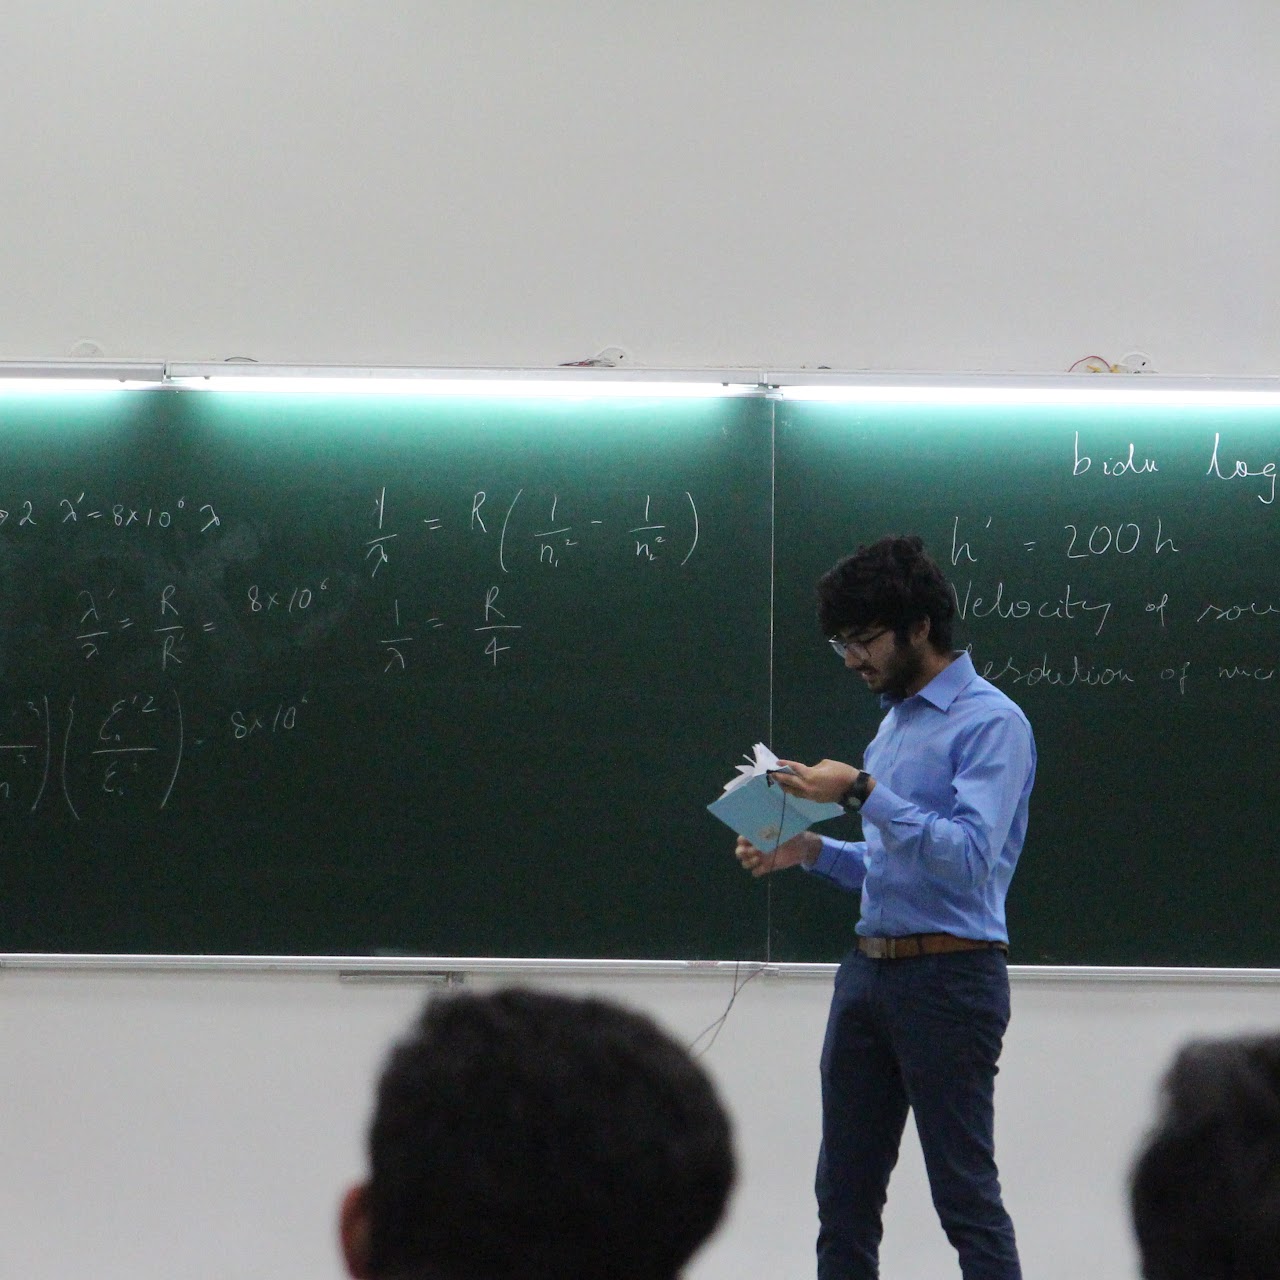 2 λ' = 8×10⁶ λ
λ'/λ = R/R' = 8×10⁶
8×10⁶
1/λ = R(1/n₁² - 1/n₂²)
1/λ = R/4
bidu log
h' = 200h
Velocity of sou
Resolution of mic